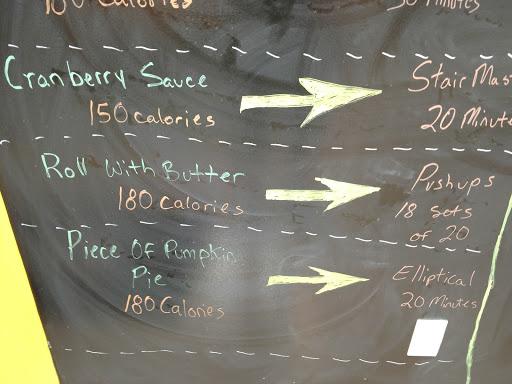 100 Calories
30 Minutes
Cranberry Sauce
150 calories
Stair Mas
20 Minute
Roll With Butter
180 calories
Pushups
18 sets
of 20
Piece Of Pumpkin
Pie
180 Calories
Elliptical
20 Minutes